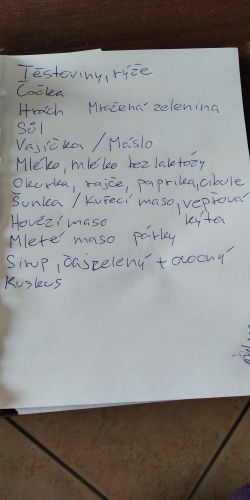 Těstoviny, rýže
Čočka
Hrách Mražená zelenina
Sůl
Vajíčka / Máslo
Mléko, mléko bez laktózy
Okurka, rajče, paprika, cibule
Šunka / Kuřecí maso, vepřová
Hovězí maso kýta
Mleté maso párky
Sirup, čaj zelený + ovocný
Kuskus